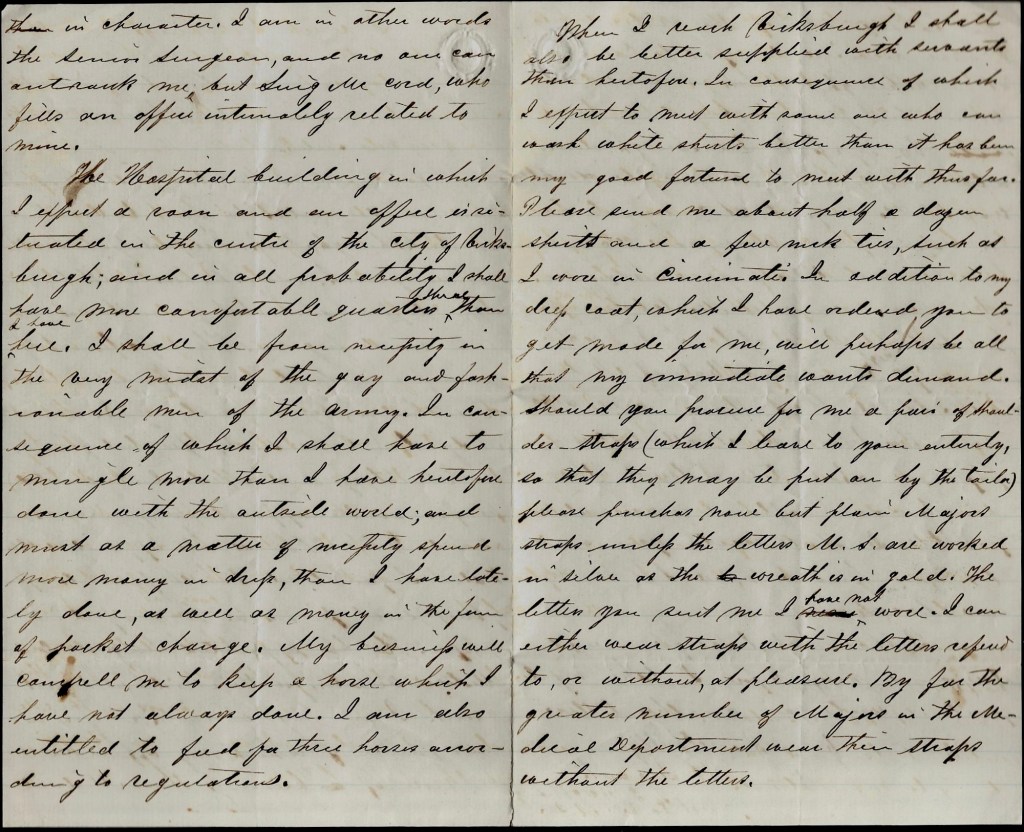 than in character. I am in other words
the senior surgeon, and no one can
outrank me, but Surg Mc cord, who
fills an office intimately related to
mine.
The Hospital building in which
I expect a room and an office is si-
tuated in the centre of the city of Vicks-
burgh; and in all probability I shall
have more comfortable quarters there than
I have
here. I shall be from necessity in
the very midst of the gay and fash-
ionable men of the army. In con-
sequence of which I shall have to
mingle more than I have heretofore
done with the outside world; and
must as a matter of necessity spend
more money in dress, than I have late-
ly done, as well as money in the form
of pocket change. My business will
compell me to keep a horse which I
have not always done. I am also
entitled to feed for three horses accor-
ding to regulations.
When I reach Vicksburgh I shall
also be better supplied with servants
than hertofore. In consequence of which
I expect to meet with some one who can
wash white shirts better than it has been
my good fortune to meet with thus far.
Please send me about half a dozen
shirts and a few neck ties, such as
I wore in Cincinnati. In addition to my
dress coat, which I have ordered you to
get made for me, will perhaps be all
that my immediate wants demand.
Should you procure for me a pair of shoul-
der-straps (which I leave to you entirely,
so that they may be put on by the tailor)
please purchas none but plain Majors
straps unless the letters M. S. are worked
in silver as the wreath is in gold. The
letters you sent me I have not wore. I can
either wear straps with the letters refered
to, or without, at pleasure. By far the
greater number of Majors in the Me-
dical Department wear their straps
without the letters.